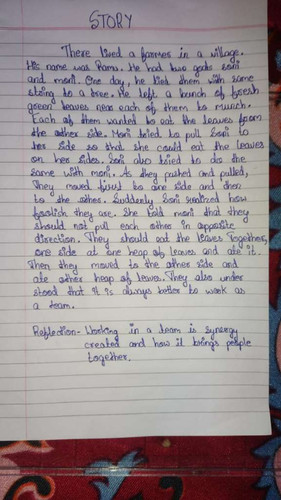 STORY
There lived a farmer in a village.
His name was Ramu. He had two goats Soni
and moni. One day, he tied them with same
string to a tree. He left a bunch of fresh
green leaves near each of them to munch.
Each of them wanted to eat the leaves from
the other side. Moni tried to pull Soni to
her side so that she could eat the leaves
on her sides. Soni also tried to do the
same with moni. As they pushed and pulled,
They moved first to one side and then
to the other. Suddenly Soni realized how
foolish they are. She told moni that they
should not pull each other in opposite
direction. They should eat the leaves together,
one side at one heap of leaves and ate it.
Then they moved to the other side and
ate other heap of leaves. They also under
stood that it is always better to work as
a team.
Reflection- Working in a team is synergy
created and how it brings people
together.